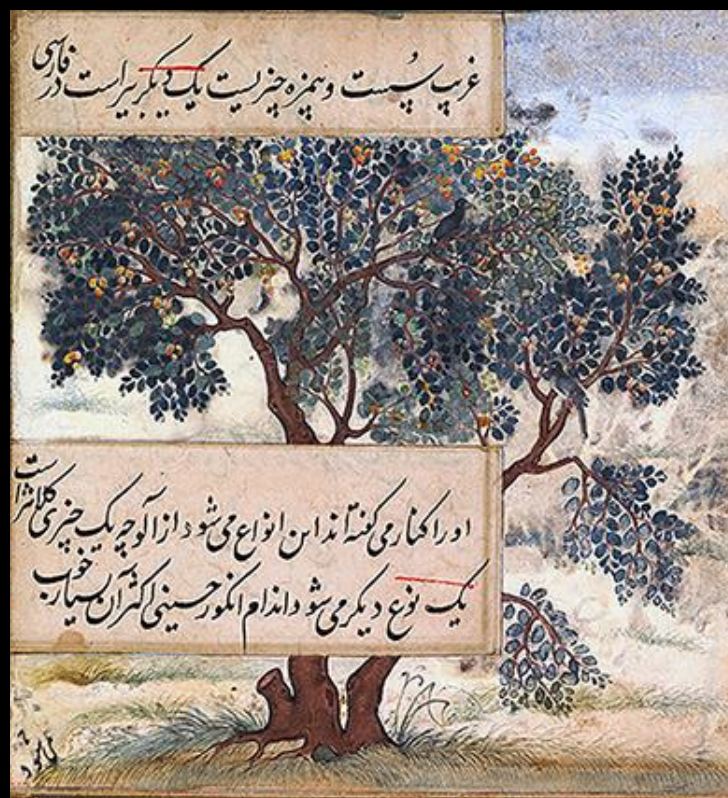 غریب پُست و بیمزه چیزیست یک دیگر بیر است در فارسی
او را کنار می گفته اند این انواع می شود از آلوچه یک چیزی کلانتر است
یک نوع دیگر می شود اندام انگور حسینی اکثر آن بسیار خوب